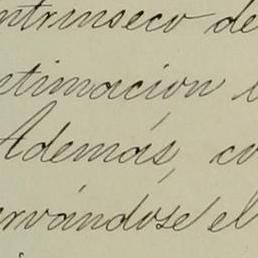 intrínseco de
timacion
Además, co
rvándose el